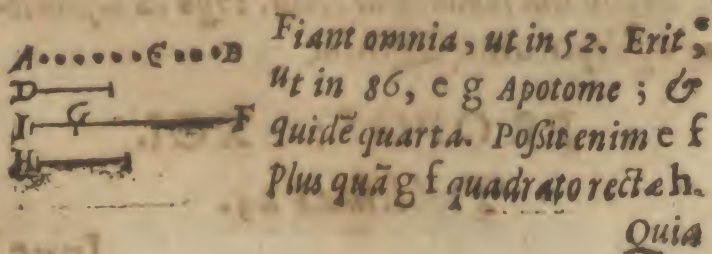 A......C...B
D
I G F
H
Fiant omnia, ut in 52. Erit,
ut in 86, e g Apotome ; &
quidẽ quarta. Poßit enim e f
Plus quã g f quadrato rectæ h.
Quia